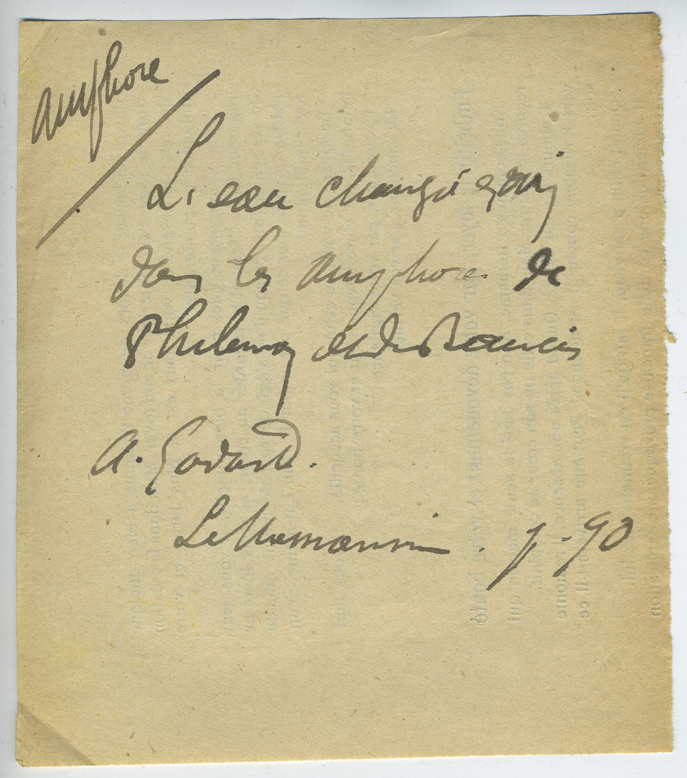 amphore
L'eau changée en vin
dans les amphores de
Philemon et de Baucis
A. Godard.
p. 90